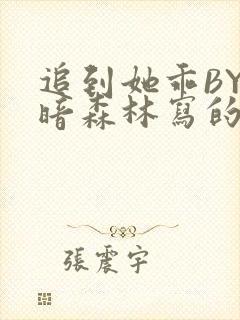 追到她乖BY
暗森林寫的
張震宇